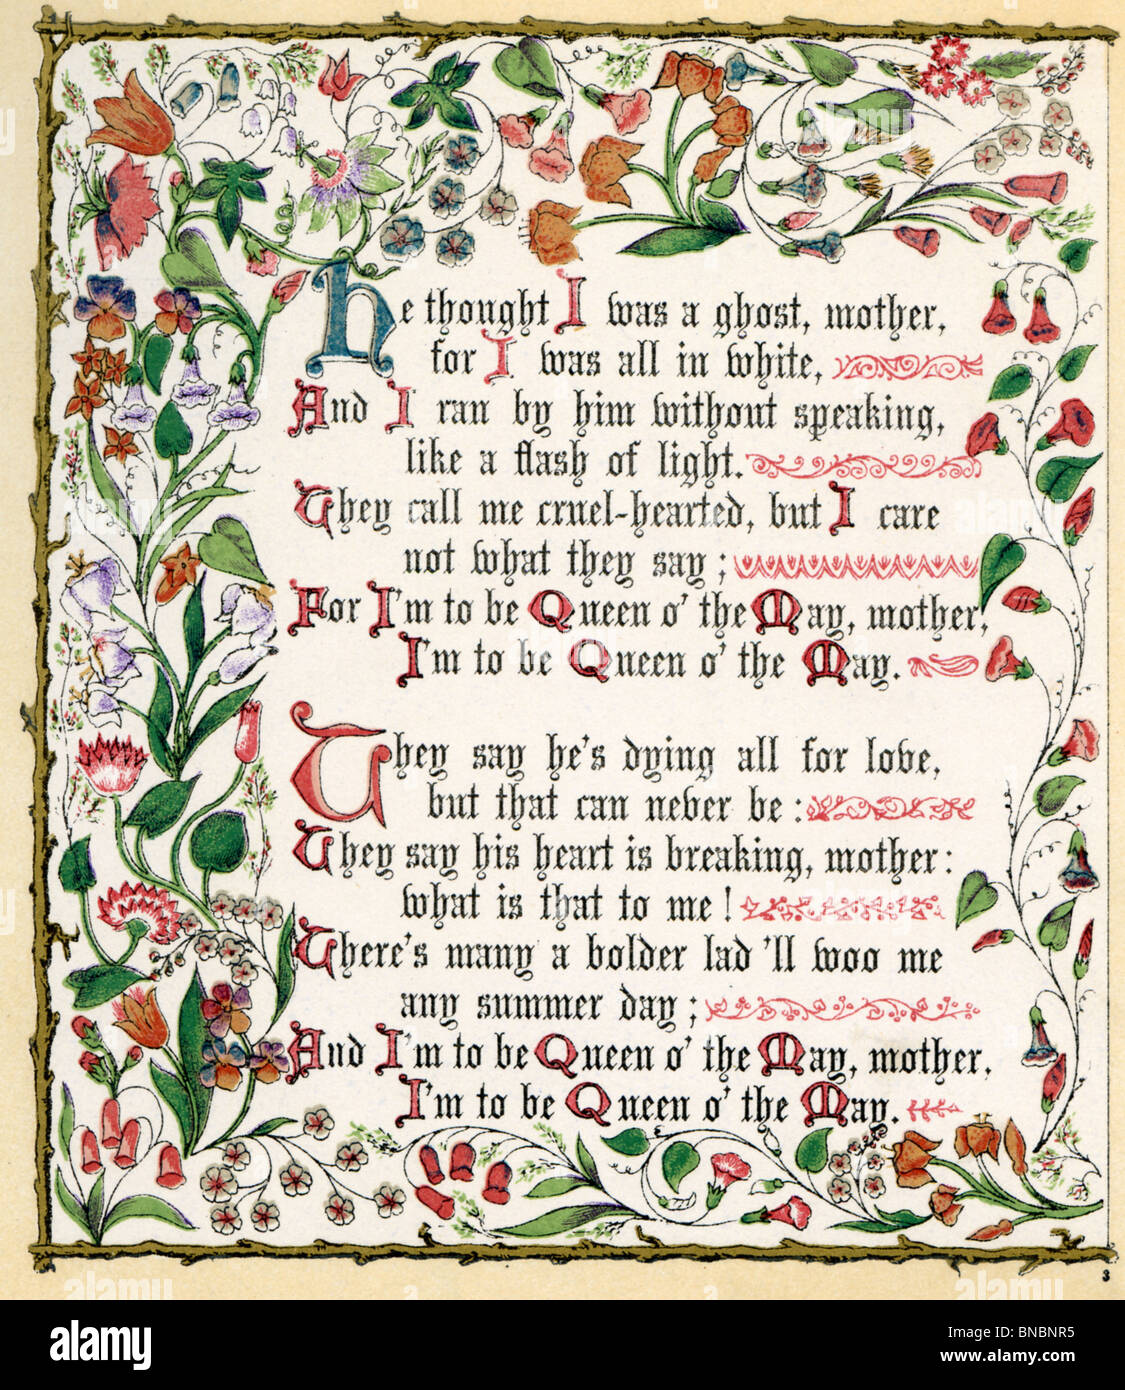 He thought I was a ghost, mother,
for I was all in white,
And I ran by him without speaking,
like a flash of light.
They call me cruel-hearted, but I care
not what they say;
For I'm to be Queen o' the May, mother,
I'm to be Queen o' the May.
They say he's dying all for love,
but that can never be:
They say his heart is breaking, mother:
what is that to me!
There's many a bolder lad 'll woo me
any summer day;
And I'm to be Queen o' the May, mother,
I'm to be Queen o' the May.
3
alamy
Image ID: BNBNR5
www.alamy.com